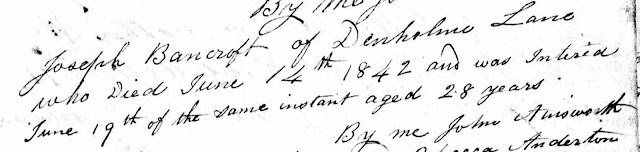 By me J
Joseph Bancroft of Denholme Lane
who Died June 14th 1842 and was Intered
June 19th of the same instant aged 28 years.
By me John Ainsworth
Anderton